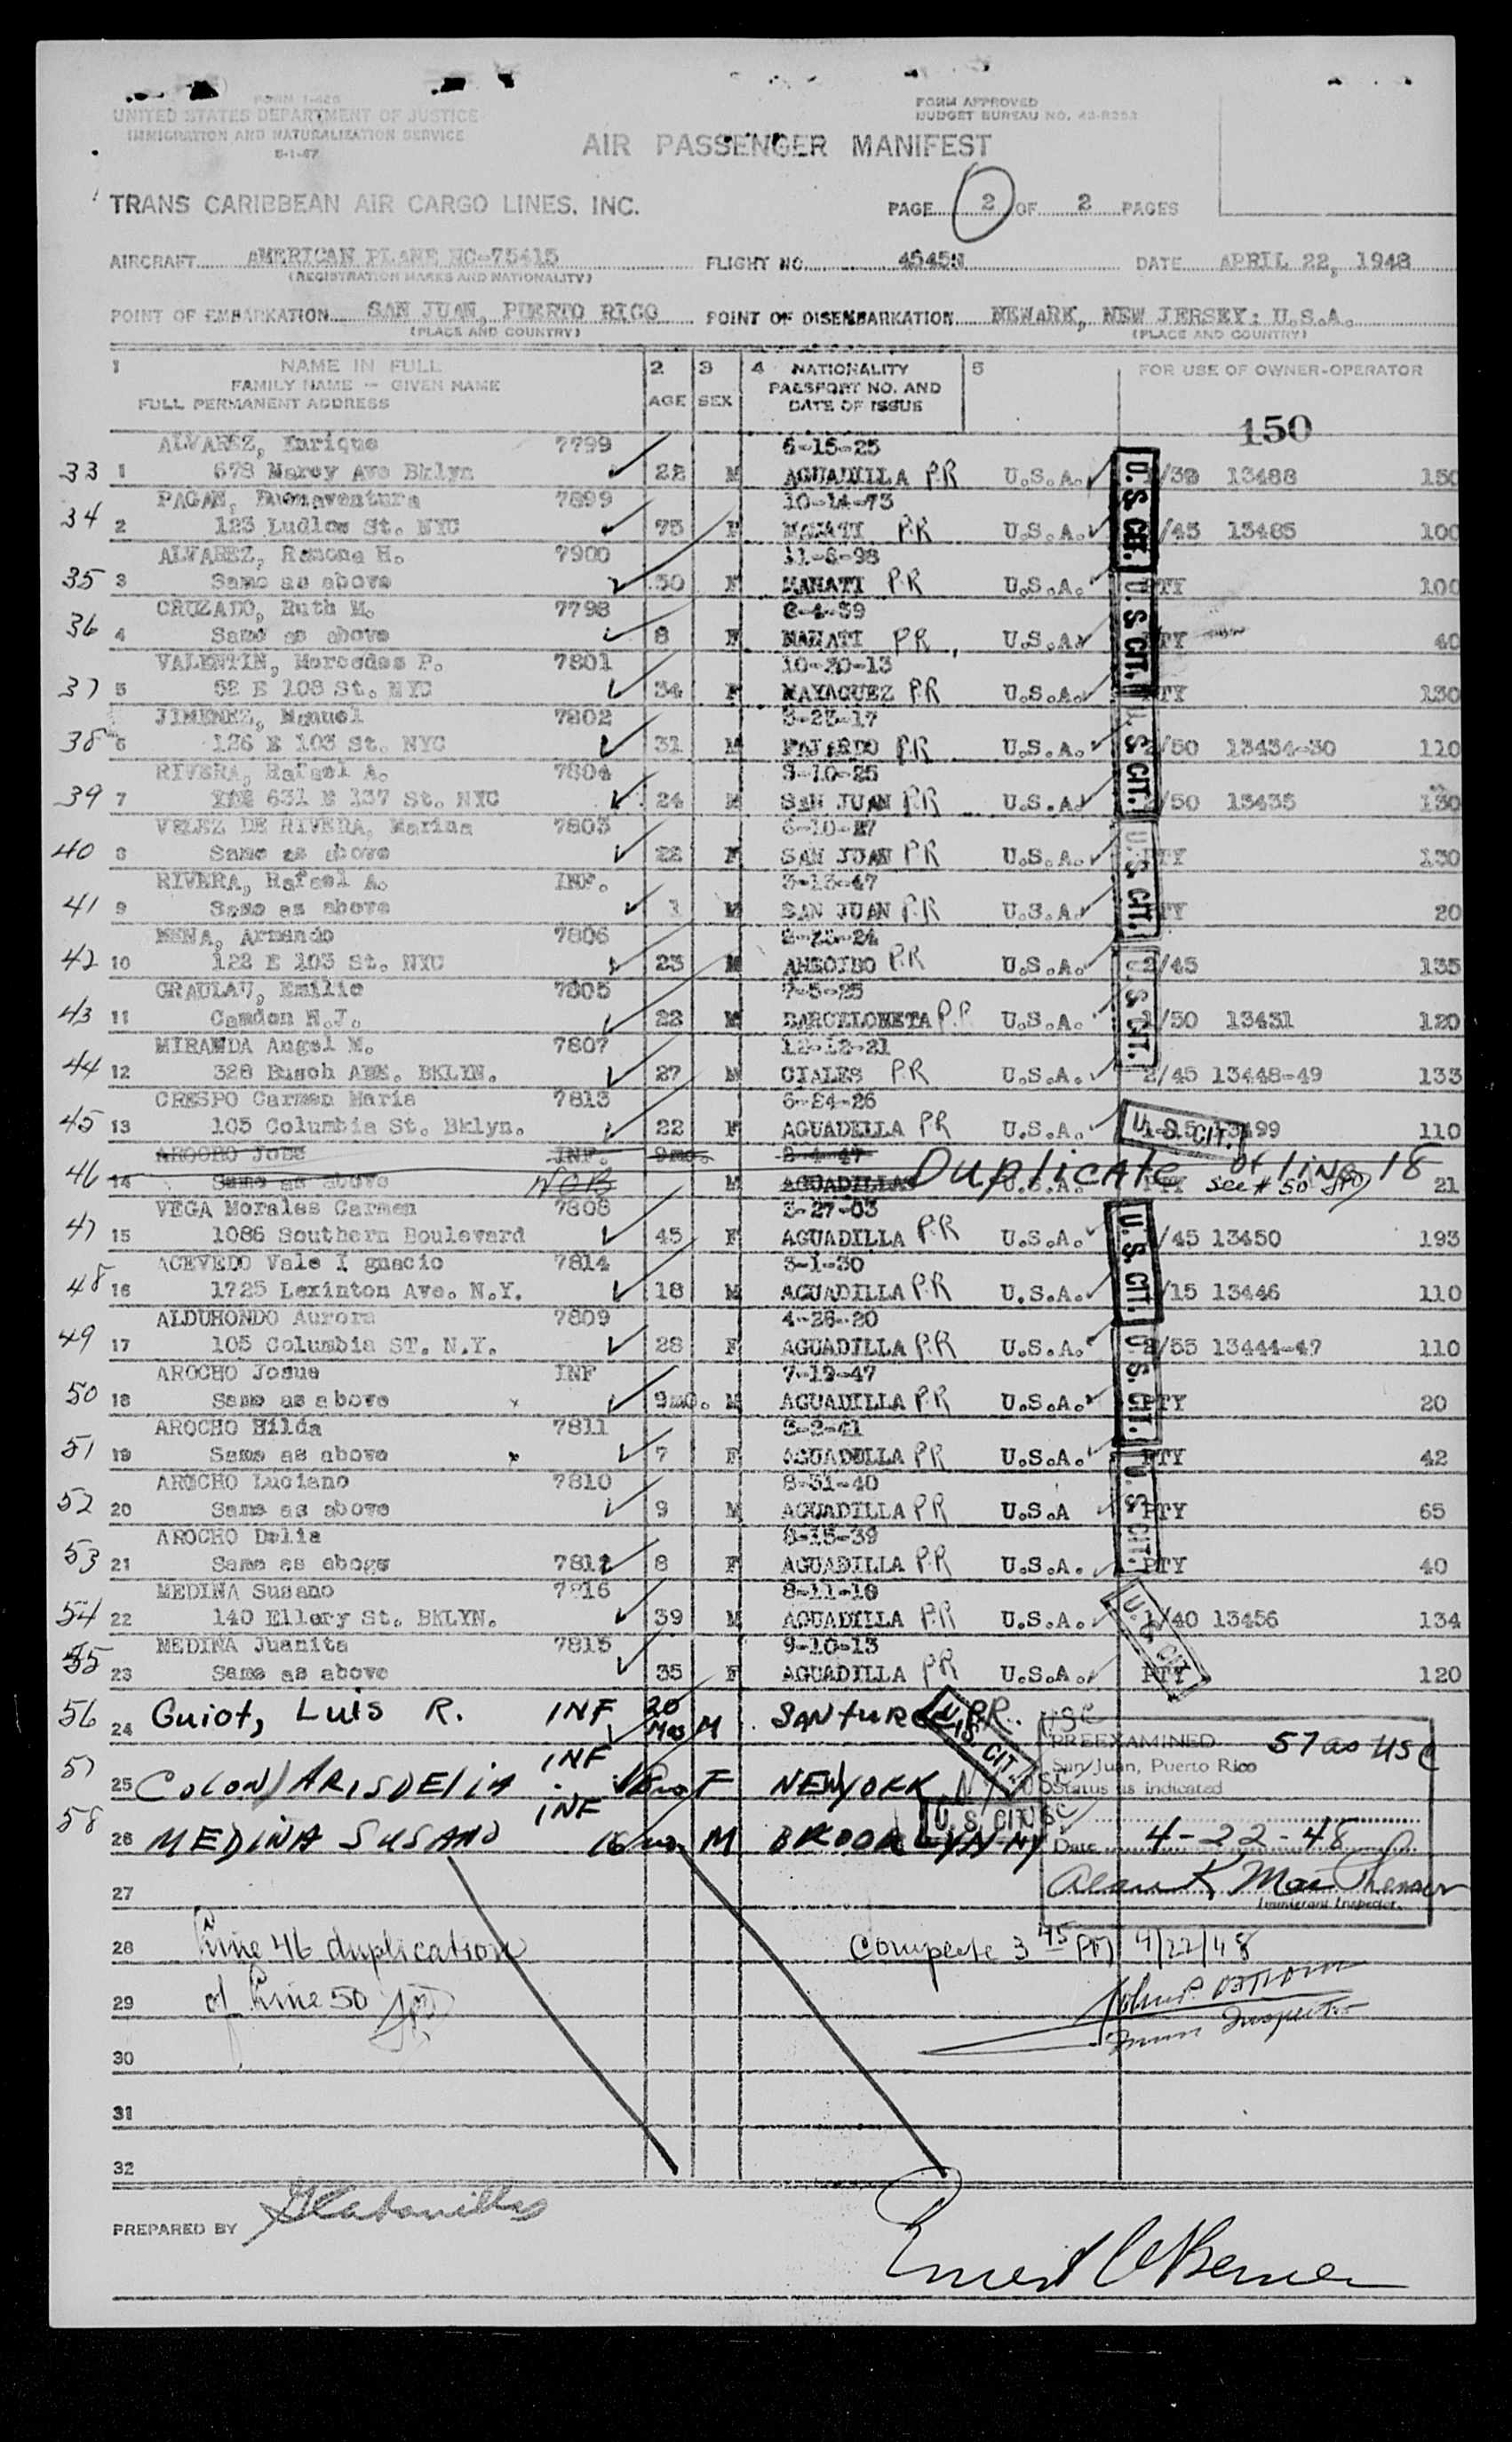 FORM I-420
UNITED STATES DEPARTMENT OF JUSTICE
IMMIGRATION AND NATURALIZATION SERVICE
FORM APPROVED
BUDGET BUREAU NO. 43-R253
AIR PASSENGER MANIFEST
TRANS CARIBBEAN AIR CARGO LINES, INC.
PAGE 2 OF 2 PAGES
AIRCRAFT AMERICAN PLANE NC-75415
(REGISTRATION MARKS AND NATIONALITY)
FLIGHT NO. 4545N
DATE APRIL 22, 1948
POINT OF EMBARKATION SAN JUAN, PUERTO RICO
(PLACE AND COUNTRY)
POINT OF DISEMBARKATION NEWARK, NEW JERSEY: U.S.A.
(PLACE AND COUNTRY)
1 NAME IN FULL 2 3 4 NATIONALITY 5 FOR USE OF OWNER-OPERATOR
FAMILY NAME — GIVEN NAME PASSPORT NO. AND
FULL PERMANENT ADDRESS AGE SEX DATE OF ISSUE
150
ALVAREZ, Enrique 7799 6-15-25
33 1 678 Marcy Ave Bklyn 22 M AGUADILLA P.R U.S.A. 13488 150
PAGAN, Buenaventura 7899 10-14-73
34 2 123 Ludlow St. NYC 75 F MANATI P.R U.S.A. /45 13485 100
ALVAREZ, Ramona H. 7900 11-6-98
35 3 Same as above 50 F MANATI P.R U.S.A. PTY 100
CRUZADO, Ruth M. 7798 8-4-39
36 4 Same as above 8 F MANATI P.R U.S.A. PTY 40
VALENTIN, Mercedes P. 7801 10-20-13
37 5 52 E 108 St. NYC 34 F MAYAGUEZ P.R U.S.A. PTY 130
JIMENEZ, Manuel 7802 3-23-17
38 6 126 E 103 St. NYC 31 M FAJARDO P.R U.S.A. 2/50 13434-30 110
RIVERA, Rafael A. 7804 3-10-25
39 7 631 E 137 St. NYC 24 M SAN JUAN P.R U.S.A. /50 13435 130
VELEZ DE RIVERA, Marina 7803 6-10-27
40 8 Same as above 22 F SAN JUAN P.R U.S.A. PTY 130
RIVERA, Rafael A. INF. 3-13-47
41 9 Same as above 1 M SAN JUAN P.R U.S.A. PTY 20
MENA, Armando 7806
42 10 122 E 103 St. NYC 23 M ARECIBO P.R U.S.A. 2/45 135
GRAULAU, Emilio 7805 7-5-25
43 11 Camden N.J. 22 M BARCELONETA P.R U.S.A. /50 13431 120
MIRANDA Angel M. 7807 12-12-21
44 12 328 Busch ABE. BKLYN. 27 M CIALES P.R U.S.A. 2/45 13448-49 133
CRESPO Carmen Maria 7813 6-24-26
45 13 105 Columbia St. Bklyn. 22 F AGUADILLA P.R U.S.A. 110
AROCHO Jose INF. 9mo. 8-4-47
46 14 Same as above M AGUADILLA Duplicate of line 18
see # 50 21
VEGA Morales Carmen 7808 3-27-03
47 15 1086 Southern Boulevard 45 F AGUADILLA P.R U.S.A. /45 13450 193
ACEVEDO Vale I gnacio 7814 3-1-30
48 16 1725 Lexinton Ave. N.Y. 18 M AGUADILLA P.R U.S.A. /15 13446 110
ALDUHONDO Aurora 7809 4-26-20
49 17 105 Columbia ST. N.Y. 28 F AGUADILLA P.R U.S.A. 2/55 13444-47 110
AROCHO Josue INF 7-19-47
50 18 Same as above 9mo. M AGUADILLA P.R U.S.A. PTY 20
AROCHO Hilda 7811 3-2-41
51 19 Same as above 7 F AGUADILLA P.R U.S.A. PTY 42
AROCHO Luciano 7810 8-31-40
52 20 Same as above 9 M AGUADILLA P.R U.S.A PTY 65
AROCHO Delia 8-15-39
53 21 Same as aboge 7812 8 F AGUADILLA P.R U.S.A. PTY 40
MEDINA Susano 7816
54 22 140 Ellery St. BKLYN. 39 M AGUADILLA P.R U.S.A. 1/40 13456 134
MEDINA Juanita 7815 9-10-13
55 23 Same as above 35 F AGUADILLA P.R U.S.A. PTY 120
56 24 Guiot, Luis R. INF 20 Mos M SANTURCE P.R. USC
57 25 COLON, ARISDELIA INF F NEW YORK N.Y USC
58 26 MEDINA SUSANO INF 16 mos M BROOKLYN NY USC
U. S. CIT.
PREEXAMINED 57 as USC
San Juan, Puerto Rico
Status as indicated
Date 4-22-48
Immigrant Inspector.
27
28 Line 46 duplication Complete 3 45 PM 4/22/48
29 of Line 50
Imm Inspector
30
31
32
PREPARED BY